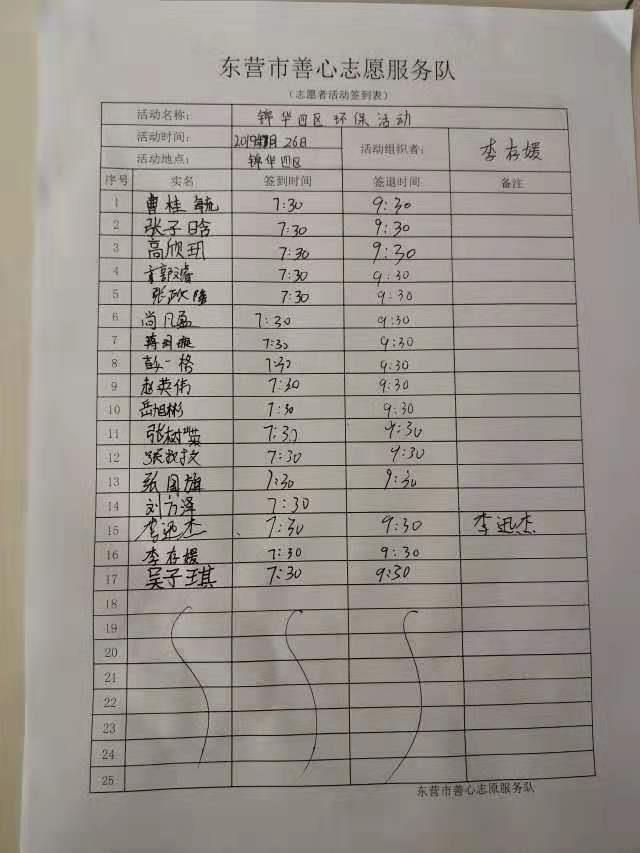 东营市善心志愿服务队
（志愿者活动签到表）
活动名称： 锦华四区环保活动
活动时间： 2019 26日 活动组织者： 李存媛
活动地点： 锦华四区
序号 实名 签到时间 签退时间 备注
1 曹桂 7:30 9:30
2 张子晗 7:30 9:30
3 高欣玥 7:30 9:30
4 7:30 9:30
5 张 7:30 9:30
6 尚凡 7:30 9:30
7 7:30 9:30
8 彭一格 7:30 9:30
9 赵英伟 7:30 9:30
10 岳旭彬 7:30 9:30
11 张树英 7:30 9:30
12 7:30 9:30
13 张国旗 7:30 9:30
14 刘方泽 7:30
15 李迅杰 7:30 9:30 李迅杰
16 李存媛 7:30 9:30
17 吴子琪 7:30 9:30
18
19
20
21
22
23
24
25
东营市善心志愿服务队